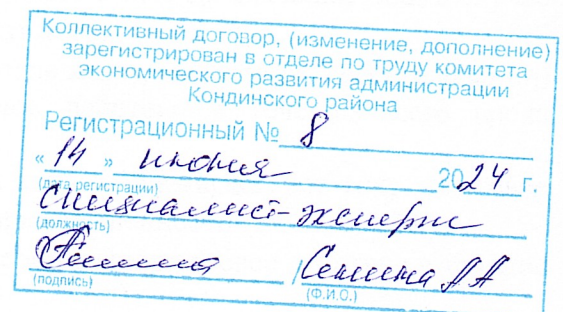 Коллективный договор, (изменение, дополнение)
зарегистрирован в отделе по труду комитета
экономического развития администрации
Кондинского района
Регистрационный № 8
« 14 » июня 2024 г.
(дата регистрации)
специалист-эксперт
(должность)
(подпись) / (Ф.И.О.)